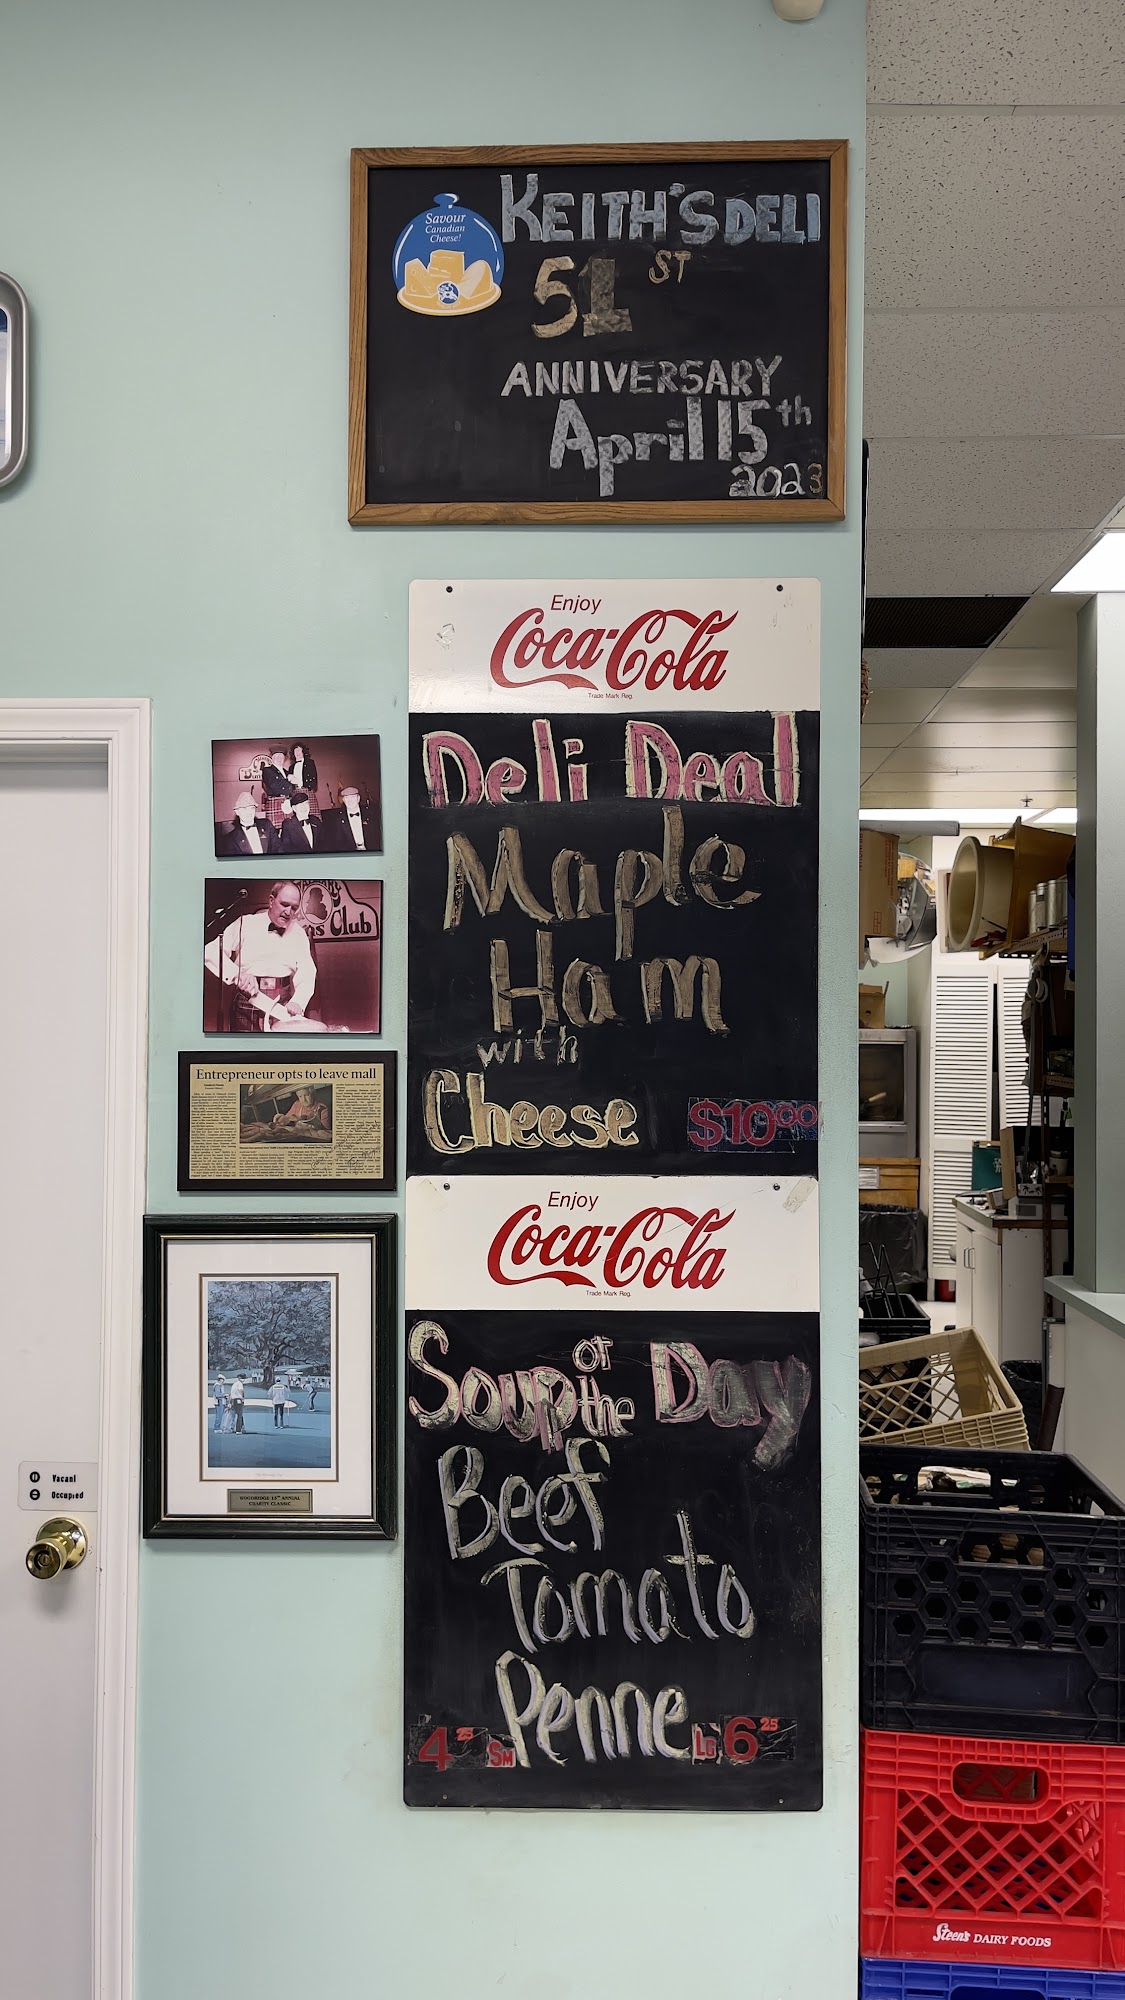 Savour
Canadian
Cheese!
KEITH'S DELI
51 ST
ANNIVERSARY
April 15th
2023
Enjoy
Coca-Cola
Trade Mark Reg.
Deli Deal
Maple
Ham
with
Cheese
$10.00
Enjoy
Coca-Cola
Trade Mark Reg.
Soup of the Day
Beef
Tomato
Penne
4 25 Sm
LG 6 25
s Club
Entrepreneur opts to leave mall
WOODRIDGE 13TH ANNUAL
CHARITY CLASSIC
Vacant
Occupied
Steen's DAIRY FOODS